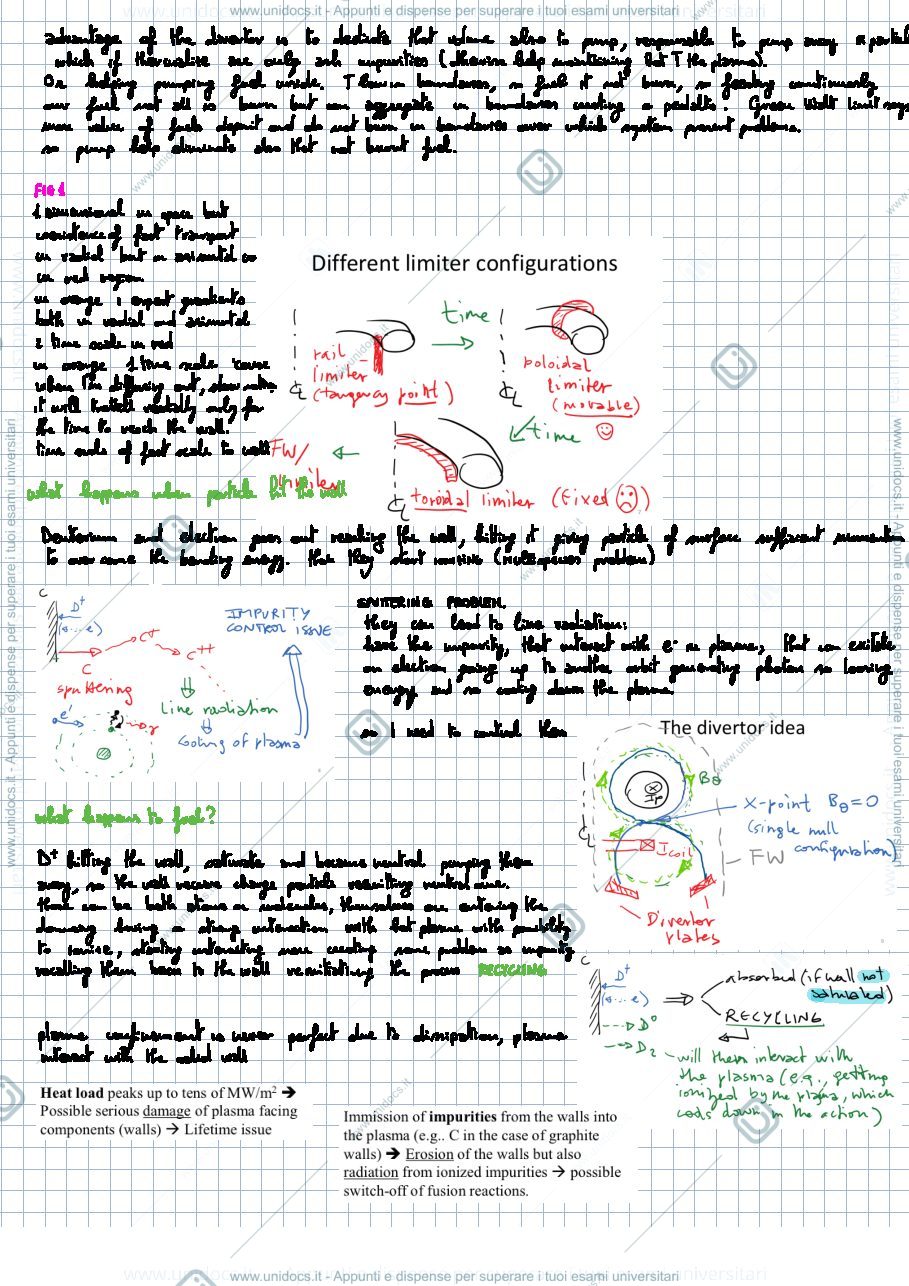 www.unidocs.it - Appunti e dispense per superare i tuoi esami universitari
advantage of the divertor is to dedicate that volume also to pump, responsable to pump away α particles
which if thermalise are only ash impurities (otherwise help mantaining hot T the plasma).
Or helping pumping fuel inside. T low in boundaries, so fuel it not burn, so feeding continuously
our fuel not all is burn but can aggregate in boundaries creating a pedalto. Green Walt limit says
max value of fuels deposit and do not burn in boundaries over which system present problems.
so pump help eliminate also that not burnt fuel.
FIG 1
1 Dimensional in space but
coexistence of fast transport
in radial but in
in red region.
in orange i expect gradients
both in radial and
2 time scale in red
in orange 1 time scale, cause
when I'm diffusing out,
it will travel radially only for
the time to reach the wall.
time scale of fast scale to wall
Different limiter configurations
time
rail
limiter
(tangency point)
poloidal
limiter
(movable)
time
FW/
toroidal limiter (fixed)
what happens when particle hit the wall
Deuterium and electron goes out reaching the wall, hitting it giving particle of surface sufficient momentum
to over come the bonding energy. then they start ionising (multispecies problem)
C
D+
(<... e)
C+
C++
C
sputtering
e-
Line radiation
Cooling of plasma
IMPURITY
CONTROL ISSUE
SPUTTERING PROBLEM.
they can lead to line radiation:
have the impurity, that interact with e- in plasma, that can excitate
an electron going up to another orbit generating photon so loosing
energy and so cooling down the plasma.
so I need to control them
The divertor idea
Bθ
Ip
X-point Bθ=0
(single null
configuration)
Icoil
FW
Divertor
plates
what happens to fuel?
D+ hitting the wall, saturate and become neutral pumping them
away, so the wall receive charge particle remitting neutral one.
these can be both atoms or molecules, themselves are entering the
having a strong interaction with hot plasma with possibility
to ionise, starting interacting more creating same problem as impurity
recalling them back to the wall reinitiating the process RECYCLING
C
D+
(<... e)
D0
D2
absorbed (if wall not
saturated)
RECYCLING
will then interact with
the plasma (e.g., getting
ionized by the plasma, which
cools down in the action)
plasma confinement is never perfect due to dissipation, plasma
interact with the solid wall
Heat load peaks up to tens of MW/m2 ➔
Possible serious damage of plasma facing
components (walls) → Lifetime issue
Immission of impurities from the walls into
the plasma (e.g.. C in the case of graphite
walls) ➔ Erosion of the walls but also
radiation from ionized impurities → possible
switch-off of fusion reactions.
www.unidocs.it - Appunti e dispense per superare i tuoi esami universitari